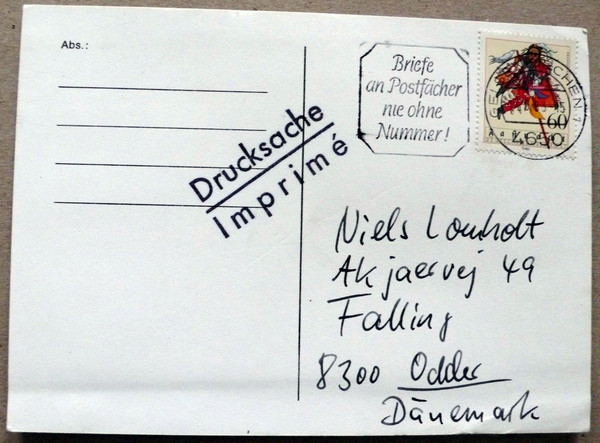 Abs.:
Briefe
an Postfächer
nie ohne
Nummer!
60
4650
Drucksache
Imprimé
Niels Lomholt
Akjaervej 49
Falling
8300 Odder
Dänemark